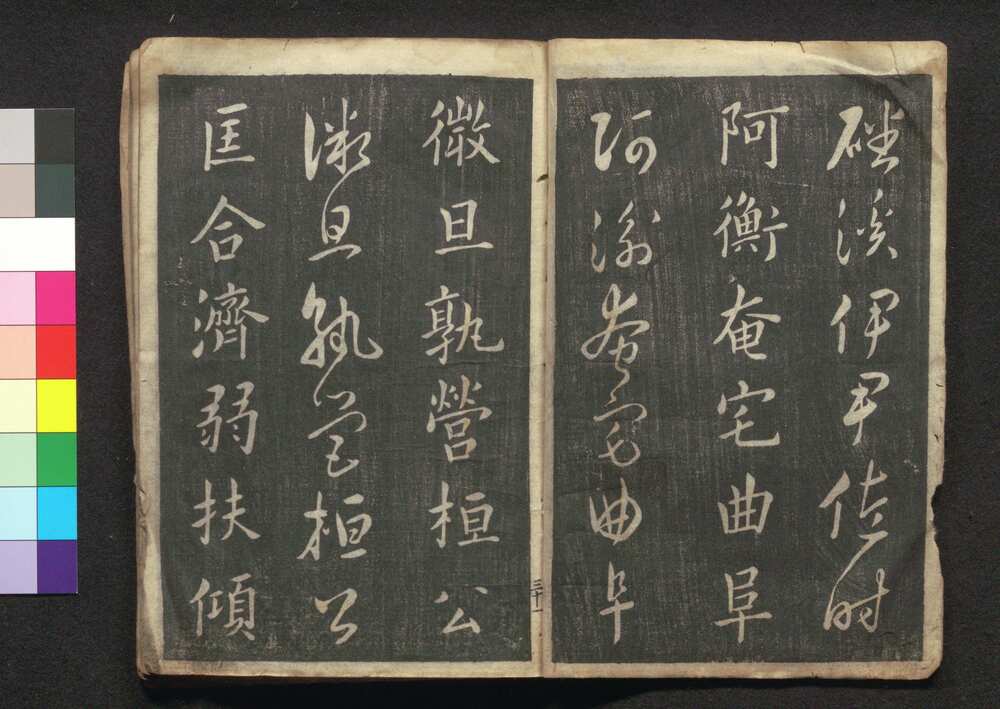 磻溪伊尹佐时
阿衡奄宅曲阜
阿衡奄宅曲阜
微旦孰營桓公
微旦孰営桓公
匡合濟弱扶傾
三十一